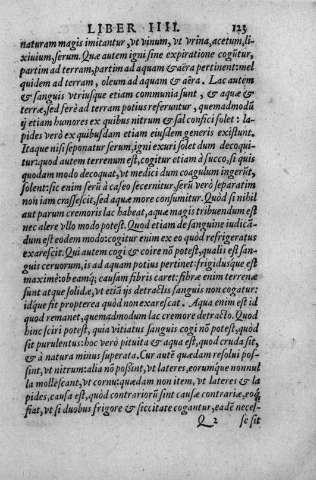 LIBER IIII. 123
naturam magis imitantur, vt vinum, vt vrina, acetum, li-
xiuium, serum. Quæ autem igni sine expiratione cogũtur,
partim ad terram, partim ad aquam & aëra pertinent: mel
quidem ad terram, oleum ad aquam & aëra. Lac autem
& sanguis vtriusque etiam communia sunt, & aquæ &
terræ, sed ferè ad terram potius referuntur, quemadmodũ
ij etiam humores ex quibus nitrum & sal confici solet: la-
pides verò ex quibusdam etiam eiusdem generis existunt.
Itaque nisi seponatur serum, igni exuri solet dum decoqui-
tur: quod autem terrenum est, cogitur etiam à succo, si quis
quodam modo decoquat, vt medici dum coagulum ingerũt,
solent: sic enim serũ à caseo secernitur. serũ verò separatim
non iam crassescit, sed aquæ more consumitur. Quòd si nihil
aut parum cremoris lac habeat, aquæ magis tribuendum est
nec alere vllo modo potest. Quod etiam de sanguine iudicã-
dum est eodem modo: cogitur enim ex eo quòd refrigeratus
exarescit. Qui autem cogi & coire nõ potest, qualis est san-
guis ceruorum, is ad aquam potius pertinet: frigidusque est
maximè: ob eamq́; causam fibris caret: fibræ enim terrenæ
sunt atque solidæ, vt etiã ijs detractis sanguis non cogatur:
idque fit propterea quòd non exarescat. Aqua enim est id
quod remanet, quemadmodum lac cremore detracto. Quod
hinc sciri potest, quia vitiatus sanguis cogi nõ potest, quòd
sit purulentus: hoc verò pituita & aqua est, quòd cruda sit,
& à natura minus superata. Cur autẽ quædam resolui pos-
sint, vt nitrum: alia nõ possint, vt lateres, eorumque nonnul
la mollescant, vt cornu: quædam non item, vt lateres & la
pides, causa est, quòd contrariorũ sint causæ contrariæ, eoq́;
fiat, vt si duobus frigore & siccitate cogantur, eadẽ neces-
Q 2 se sit